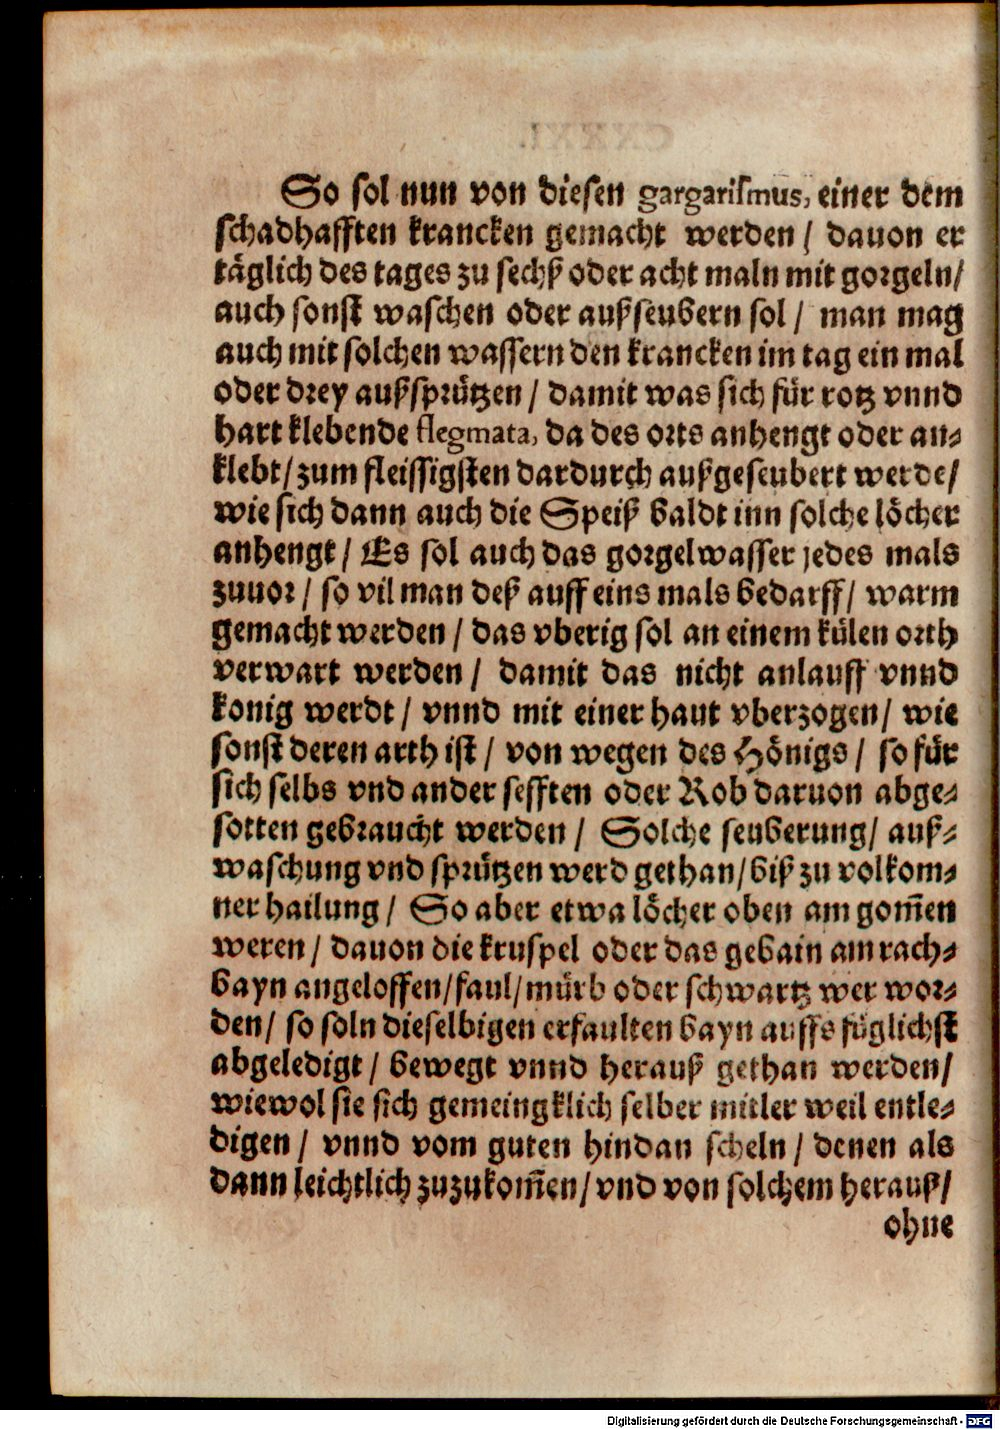 So sol nun von diesen gargarismus, einer dem
schadhafften krancken gemacht werden / dauon er
täglich des tages zu sechß oder acht maln mit gorgeln/
auch sonst waschen oder außseubern sol / man mag
auch mit solchen wassern den krancken im tag ein mal
oder drey außsprützen / damit was sich für rotz vnnd
hart klebende flegmata, da des orts anhengt oder an⸗
klebt/ zum fleissigsten dardurch außgeseubert werde/
wie sich dann auch die Speiß baldt inn solche löcher
anhengt / Es sol auch das gorgelwasser jedes mals
zuuor / so vil man deß auff eins mals bedarff/ warm
gemacht werden / das vberig sol an einem külen orth
verwart werden / damit das nicht anlauff vnnd
konig werdt / vnnd mit einer haut vberzogen/ wie
sonst deren arth ist / von wegen des Hönigs / so für
sich selbs vnd ander sefften oder Rob daruon abge⸗
sotten gebraucht werden / Solche seuberung/ auß⸗
waschung vnd sprützen werd gethan/ biß zu volkom⸗
ner hailung / So aber etwa löcher oben am gom̃en
weren / dauon die kruspel oder das gebain am rach⸗
bayn angeloffen/faul/mürb oder schwartz wer wor⸗
den/ so soln dieselbigen erfaulten bayn auffs füglichst
abgeledigt / bewegt vnnd herauß gethan werden/
wiewol sie sich gemeingklich selber mitler weil entle⸗
digen / vnnd vom guten hindan scheln / denen als
dann leichtlich zuzukom̃en/ vnd von solchem herauß/
ohne
CXXXI.
Digitalisierung gefördert durch die Deutsche Forschungsgemeinschaft - DFG